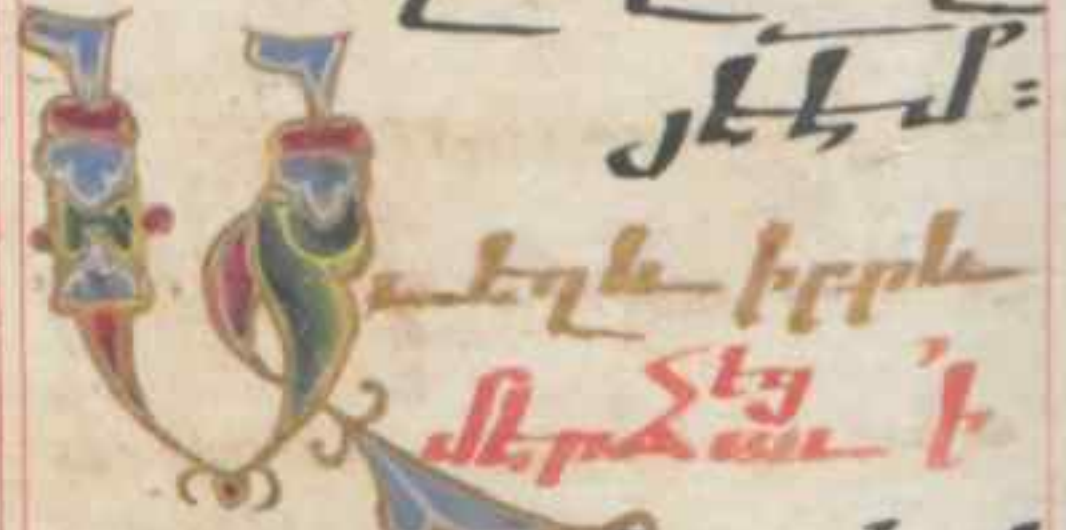 յեէմ:
Եւ եղև իբրև
մերձեցաւ ՚ի